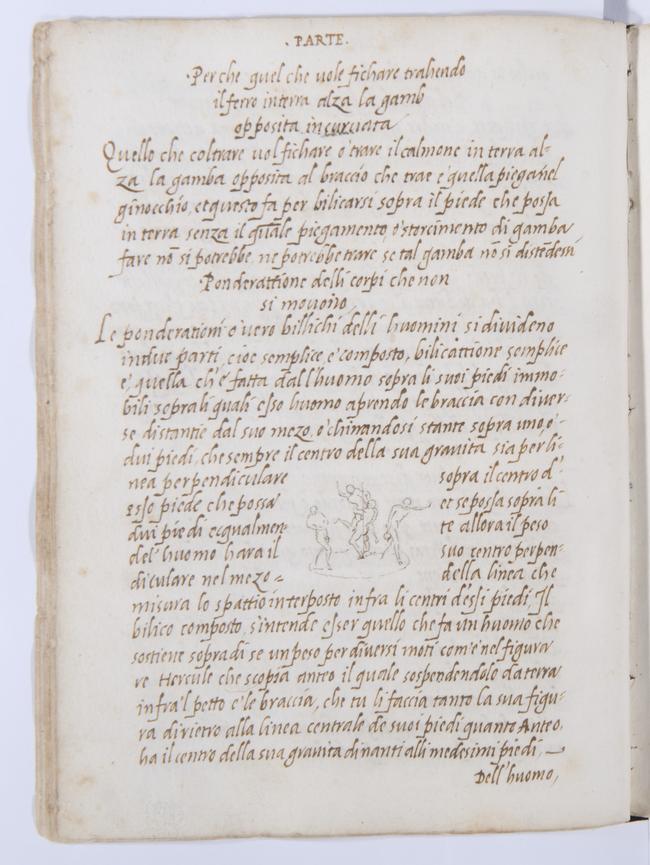 . PARTE .
Perche quel che vole fichare trahendo
il ferro in terra alza la gamb
opposita incuruata
Quello che coltrare uol fichare o' trare il calmone in terra al-
za la gamba opposita al braccio che trae e quella piega nel
ginocchio, et questo fa per bilicarsi sopra il piede che possa
in terra senza il quale piegamento, o' storcimento di gamba
fare nō si potrebbe, ne potrebbe trare se tal gamba nō si distēdessi
Ponderattione delli corpi che non
si mouono
Le ponderationi o uero billichi delli huomini si diuideno
in due parti, cioe semplice, e' composto, bilicattione semplice
e', quella ch'e' fatta dall'huomo sopra li suoi piedi immo-
bili sopra li quali esso huomo aprendo le braccia con diuer-
se distantie dal suo mezo, o' chinandosi stante sopra uno, o'
dui piedi, che sempre il centro della sua grauita sia per li-
nea perpendiculare sopra il centro d'
esso piede che possa et se possa sopra li
dui piedi equalmen- te allora il peso
del' huomo hara il suo centro perpen-
diculare nel mezo = della linea che
misura lo spattio interposto infra li centri d'essi piedi, Il
bilico composto, s'intende esser quello che fa un huomo che
sostiene sopra di se un peso per diuersi moti com'e' nel figura
re Hercule che scopia anteo il quale sospendendolo da terra
infra'l petto e' le braccia, che tu li faccia tanto la sua figu-
ra dirietro alla linea centrale de suoi piedi quanto Anteo,
ha il centro della sua grauita dinanti alli medesimi piedi,
Dell'huomo,